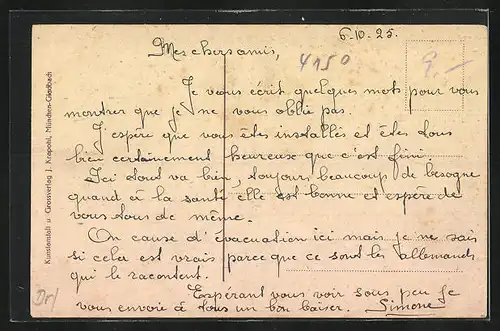 6-10-25.
Mes chers amis,
4150
9.-
Je vous écrit quelques mots pour vous
montrer que je ne vous oublie pas.
J'espère que vous êtes installés et êtes tous
bien certainement heureuse que c'est fini
Ici tout va bien, toujours beaucoup de besogne
quand à la santé elle est bonne et espère de
vous tous de même.
On cause d'évacuation ici mais je ne sais
si cela est vrais parce que ce sont les allemands
qui le racontent.
Espérant vous voir sous peu je
vous envoie à tous un bon baiser. Simone
Kunstanstalt u. Grossverlag J. Krapohl, München-Gladbach